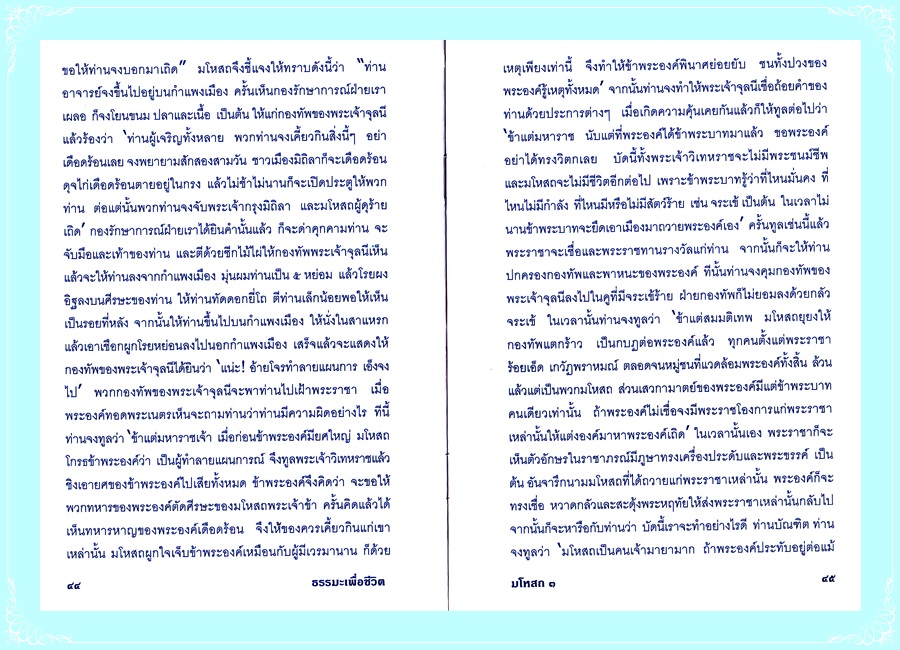 ขอให้ท่านจงบอกมาเถิด” มโหสถจึงชี้แจงให้ทราบดังนี้ว่า “ท่าน
อาจารย์จงขึ้นไปอยู่บนกำแพงเมือง ครั้นเห็นกองรักษาการณ์ฝ่ายเรา
เผลอ ก็จงโยนขนม ปลาและเนื้อ เป็นต้น ให้แก่กองทัพของพระเจ้าจุลนี
แล้วร้องว่า ‘ท่านผู้เจริญทั้งหลาย พวกท่านจงเคี้ยวกินสิ่งนี้ๆ อย่า
เดือดร้อนเลย จงพยายามสักสองสามวัน ชาวเมืองมิถิลาก็จะเดือดร้อน
ดุจไก่เดือดร้อนตายอยู่ในกรง แล้วไม่ช้าไม่นานก็จะเปิดประตูให้พวก
ท่าน ต่อแต่นั้นพวกท่านจงจับพระเจ้ากรุงมิถิลา และมโหสถผู้ดุร้าย
เถิด’ กองรักษาการณ์ฝ่ายเราได้ยินคำนั้นแล้ว ก็จะด่าคุกคามท่าน จะ
จับมือและเท้าของท่าน และตีด้วยซีกไม้ไผ่ให้กองทัพพระเจ้าจุลนีเห็น
แล้วจะให้ท่านลงจากกำแพงเมือง มุ่นผมท่านเป็น ๕ หย่อม แล้วโรยผง
อิฐลงบนศีรษะของท่าน ให้ท่านทัดดอกยี่โถ ตีท่านเล็กน้อยพอให้เห็น
เป็นรอยที่หลัง จากนั้นให้ท่านขึ้นไปบนกำแพงเมือง ให้นั่งในสาแหรก
แล้วเอาเชือกผูกโรยหย่อนลงไปนอกกำแพงเมือง เสร็จแล้วจะแสดงให้
กองทัพของพระเจ้าจุลนีได้ยินว่า ‘แน่ะ! อ้ายโจรทำลายแผนการ เอ็งจง
ไป’ พวกกองทัพของพระเจ้าจุลนีจะพาท่านไปเฝ้าพระราชา เมื่อ
พระองค์ทอดพระเนตรเห็นจะถามท่านว่าท่านมีความผิดอย่างไร ทีนี้
ท่านจงทูลว่า ‘ข้าแต่มหาราชเจ้า เมื่อก่อนข้าพระองค์มียศใหญ่ มโหสถ
โกรธข้าพระองค์ว่า เป็นผู้ทำลายแผนการณ์ จึงทูลพระเจ้าวิเทหราชแล้ว
ชิงเอายศของข้าพระองค์ไปเสียทั้งหมด ข้าพระองค์จึงคิดว่า จะขอให้
พวกทหารของพระองค์ตัดศีรษะของมโหสถพระเจ้าข้า ครั้นคิดแล้วได้
เห็นทหารหาญของพระองค์เดือดร้อน จึงให้ของควรเคี้ยวกินแก่เขา
เหล่านั้น มโหสถผูกใจเจ็บข้าพระองค์เหมือนกับผู้มีเวรมานาน ก็ด้วย
๔๔ ธรรมะเพื่อชีวิต
เหตุเพียงเท่านี้ จึงทำให้ข้าพระองค์พินาศย่อยยับ ชนทั้งปวงของ
พระองค์รู้เหตุทั้งหมด’ จากนั้นท่านจงทำให้พระเจ้าจุลนีเชื่อถ้อยคำของ
ท่านด้วยประการต่างๆ เมื่อเกิดความคุ้นเคยกันแล้วก็ให้ทูลต่อไปว่า
‘ข้าแต่มหาราช นับแต่ที่พระองค์ได้ข้าพระบาทมาแล้ว ขอพระองค์
อย่าได้ทรงวิตกเลย บัดนี้ทั้งพระเจ้าวิเทหราชจะไม่มีพระชนม์ชีพ
และมโหสถจะไม่มีชีวิตอีกต่อไป เพราะข้าพระบาทรู้ว่าที่ไหนมั่นคง ที่
ไหนไม่มีกำลัง ที่ไหนมีหรือไม่มีสัตว์ร้าย เช่น จระเข้ เป็นต้น ในเวลาไม่
นานข้าพระบาทจะยึดเอาเมืองมาถวายพระองค์เอง’ ครั้นทูลเช่นนี้แล้ว
พระราชาจะเชื่อและพระราชทานรางวัลแก่ท่าน จากนั้นก็จะให้ท่าน
ปกครองกองทัพและพาหนะของพระองค์ ทีนั้นท่านจงคุมกองทัพของ
พระเจ้าจุลนีลงไปในคูที่มีจระเข้ร้าย ฝ่ายกองทัพก็ไม่ยอมลงด้วยกลัว
จระเข้ ในเวลานั้นท่านจงทูลว่า ‘ข้าแต่สมมติเทพ มโหสถยุยงให้
กองทัพแตกร้าว เป็นกบฏต่อพระองค์แล้ว ทุกคนตั้งแต่พระราชา
ร้อยเอ็ด เกวัฏพราหมณ์ ตลอดจนหมู่ชนที่แวดล้อมพระองค์ทั้งสิ้น ล้วน
แล้วแต่เป็นพวกมโหสถ ส่วนเสวกามาตย์ของพระองค์มีแต่ข้าพระบาท
คนเดียวเท่านั้น ถ้าพระองค์ไม่เชื่อจงมีพระราชโองการแก่พระราชา
เหล่านั้นให้แต่งองค์มาหาพระองค์เถิด’ ในเวลานั้นเอง พระราชาก็จะ
เห็นตัวอักษรในราชาภรณ์มีภูษาทรงเครื่องประดับและพระขรรค์ เป็น
ต้น อันจารึกนามมโหสถที่ได้ถวายแก่พระราชาเหล่านั้น พระองค์ก็จะ
ทรงเชื่อ หวาดกลัวและสะดุ้งพระหฤทัยให้ส่งพระราชาเหล่านั้นกลับไป
จากนั้นก็จะหารือกับท่านว่า บัดนี้เราจะทำอย่างไรดี ท่านบัณฑิต ท่าน
จงทูลว่า ‘มโหสถเป็นคนเจ้ามายามาก ถ้าพระองค์ประทับอยู่ต่อแม้
มโหสถ ๑ ๔๕